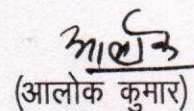 आलोक
(आलोक कुमार)